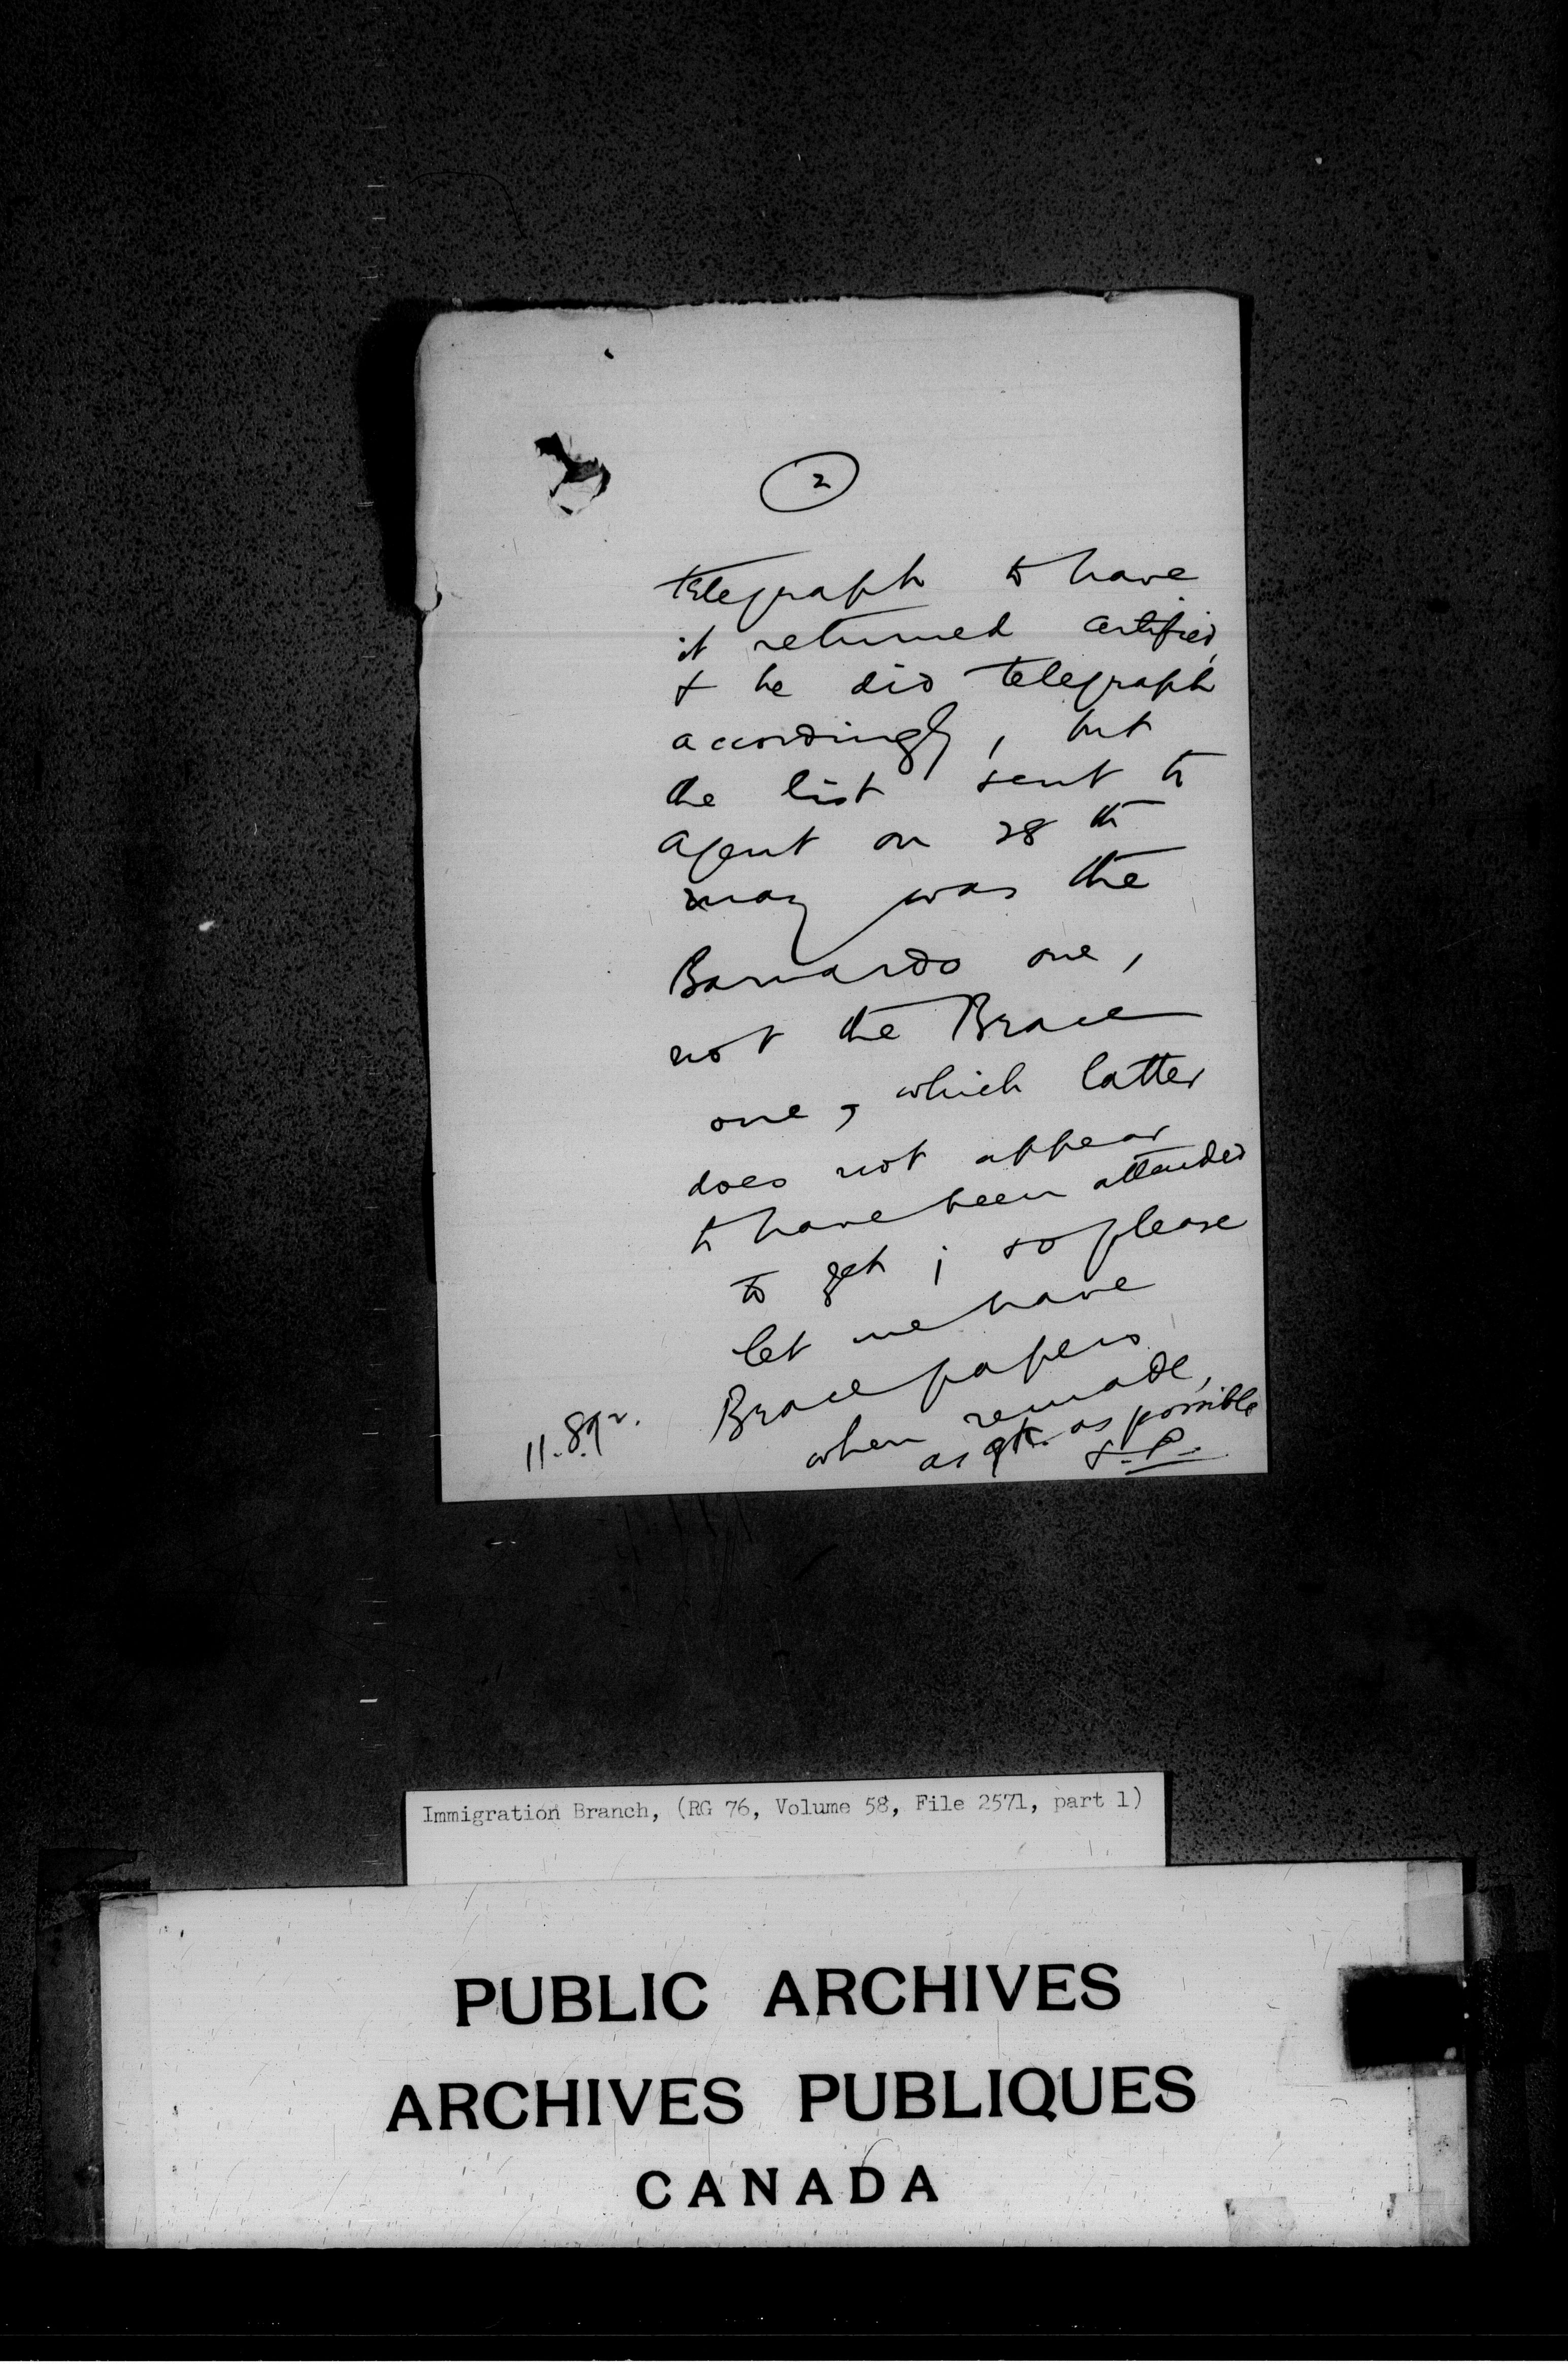 2
telegraph to have
it returned certified,
& he did telegraph
accordingly, but
the list sent to
agent on 28 th
may was the
Barnardo one,
not the Brace
one, which latter
does not appear
to have been attended
to yet; so please
let me have
Brace papers
when remade,
as qk. as possible
11.8.92.
Immigration Branch, (RG 76, Volume 58, File 2571, part 1)
PUBLIC ARCHIVES
ARCHIVES PUBLIQUES
CANADA